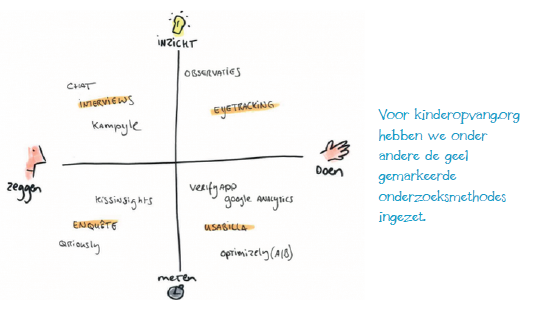 INZICHT
OBSERVATIES
CHAT
INTERVIEWS
EYETRACKING
KAMPYLE
Zeggen
Doen
KISSINSIGHTS
VERIFYAPP
google ANALYTICS
ENQUÊTE
USABILLA
QRIOUSLY
OPTIMIZELY (A/B)
METEN
Voor kinderopvang.org
hebben we onder
andere de geel
gemarkeerde
onderzoeksmethodes
ingezet.